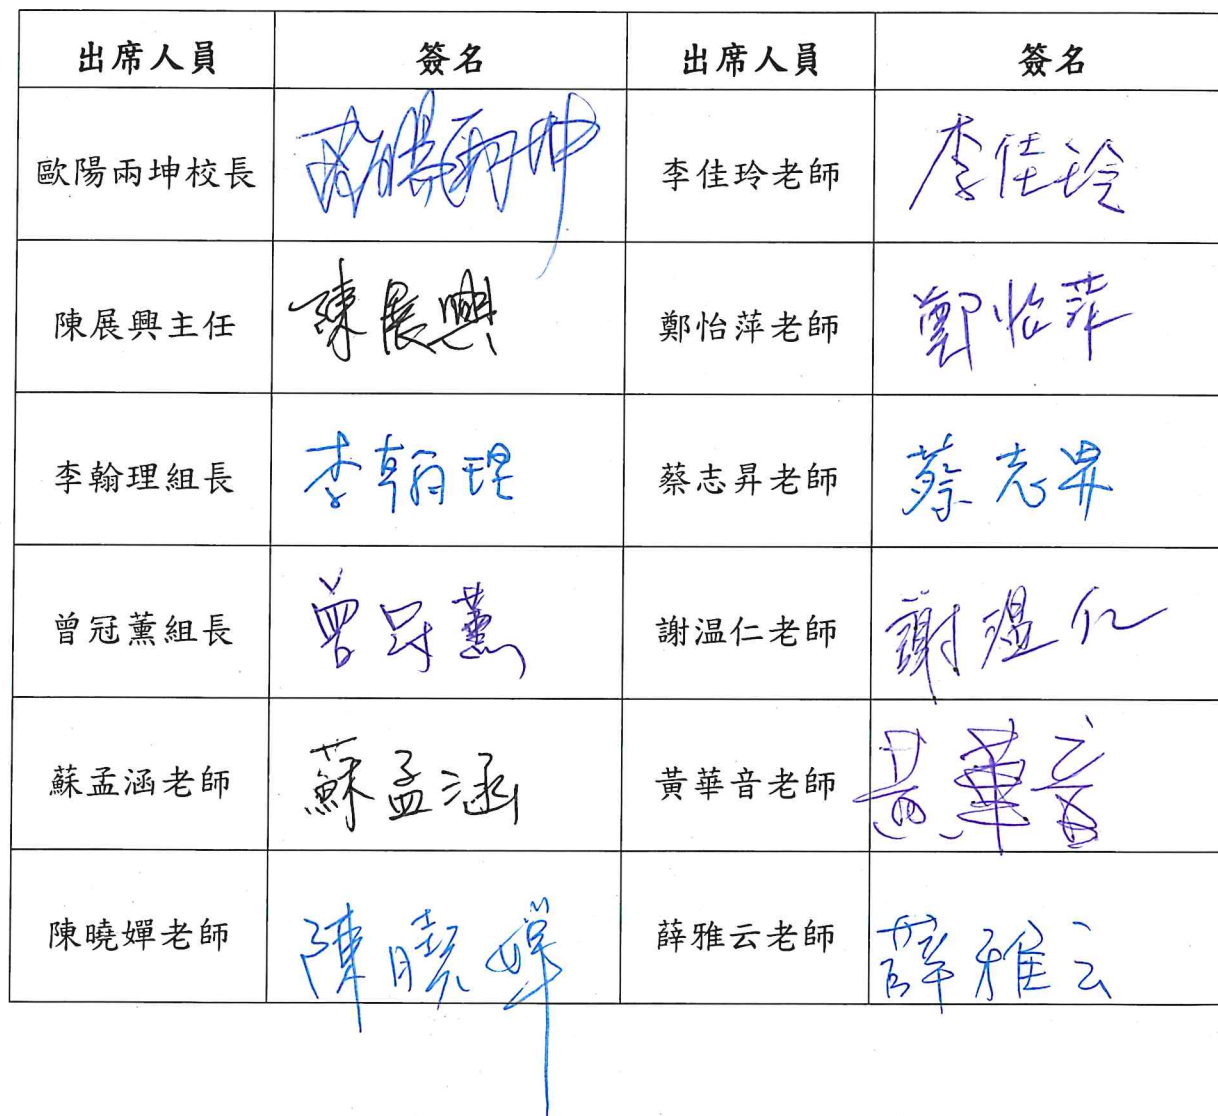 出席人員 簽名 出席人員 簽名
歐陽兩坤校長 歐陽兩坤 李佳玲老師 李佳玲
陳展興主任 陳展興 鄭怡萍老師 鄭怡萍
李翰理組長 李翰理 蔡志昇老師 蔡志昇
曾冠薰組長 曾冠薰 謝温仁老師 謝温仁
蘇孟涵老師 蘇孟涵 黃華音老師 黃華音
陳曉嬋老師 陳曉嬋 薛雅云老師 薛雅云